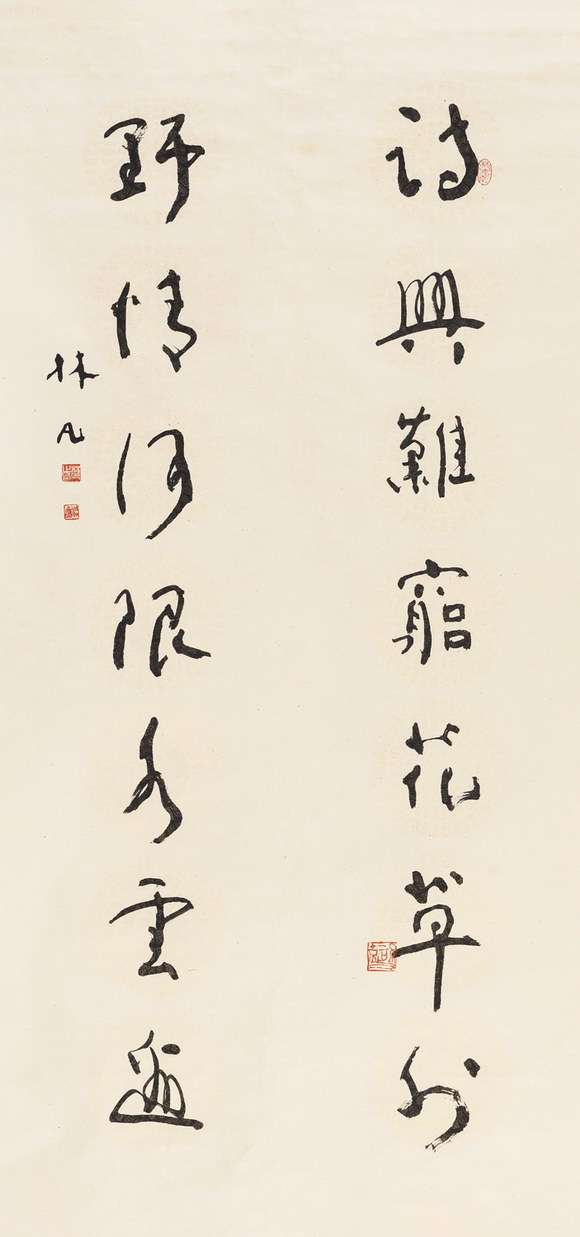 詩興難窮花草外
野情何限水雲邊
林凡